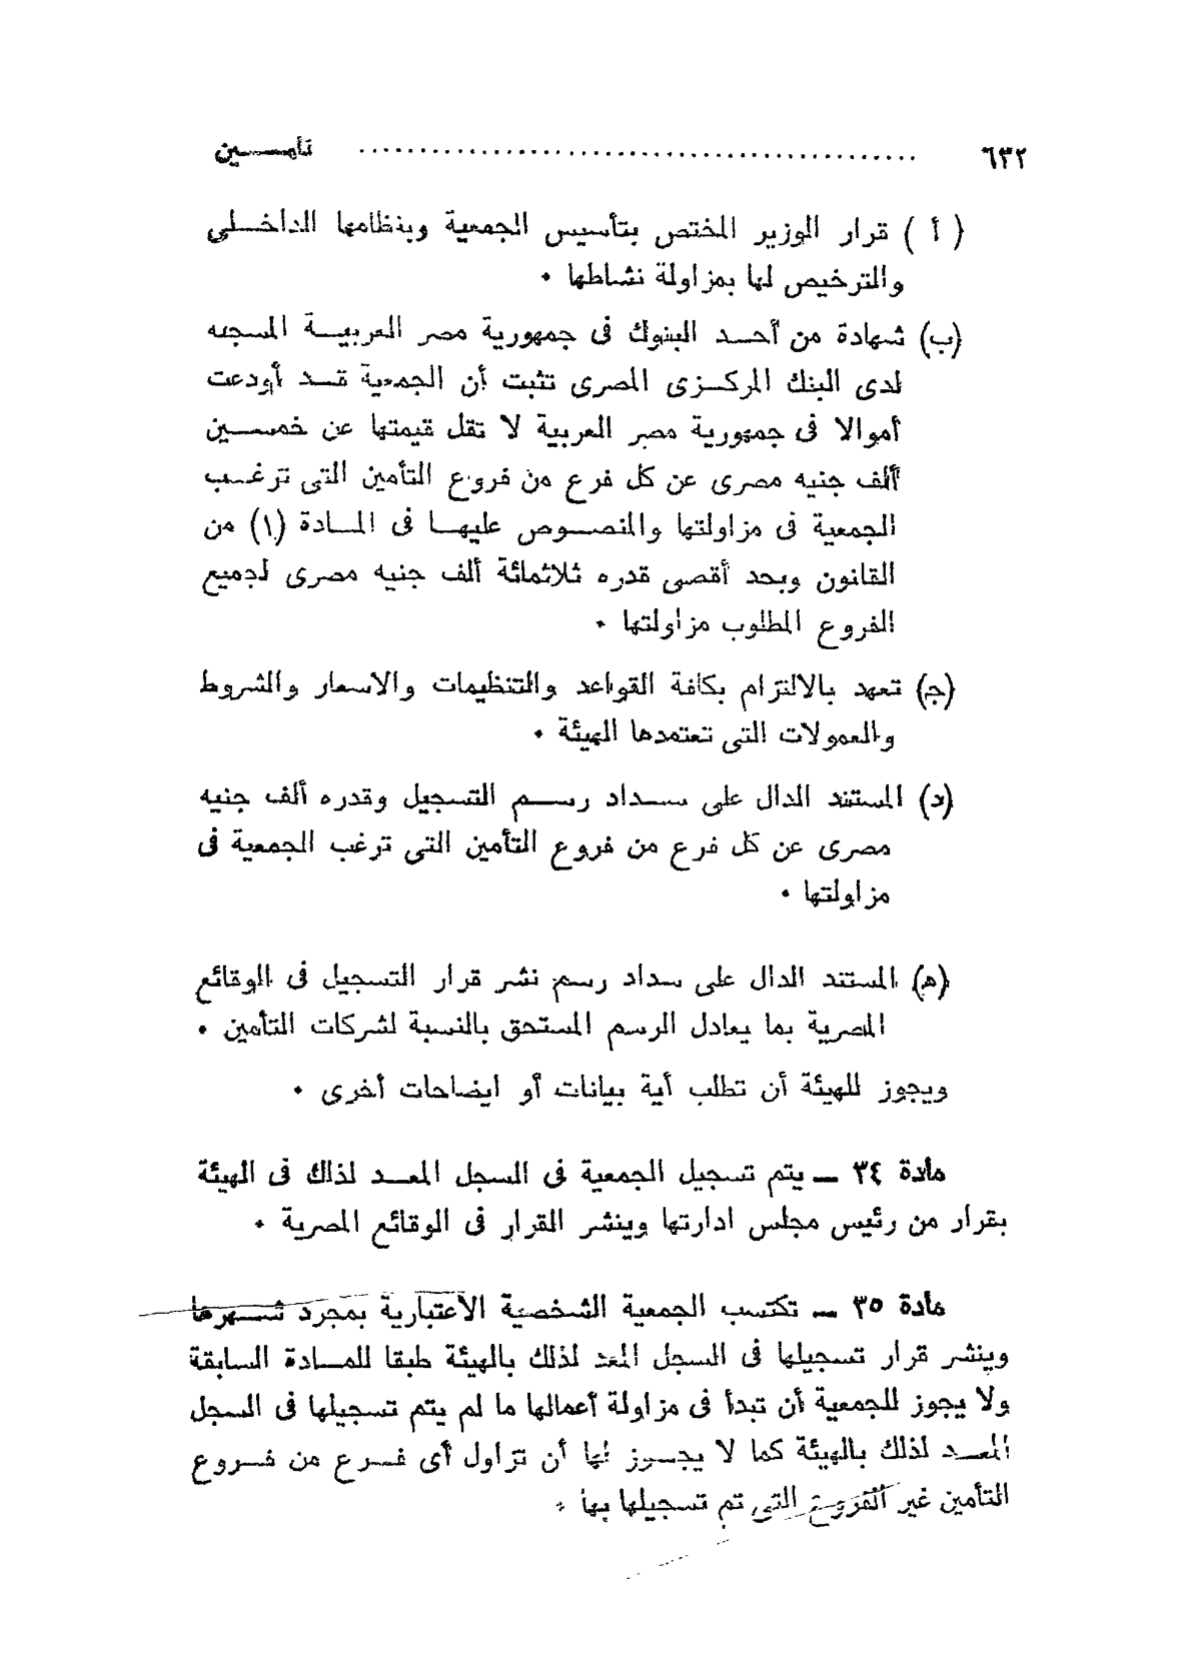 ٦٣٢ ............................................. تأمـــين
( أ ) قرار الوزير المختص بتأسيس الجمعية وبنظامها الداخــلى
والترخيص لها بمزاولة نشاطها .
(ب) شهادة من أحــد البنوك فى جمهورية مصر العربيــة المسجله
لدى البنك المركــزى المصرى تثبت أن الجمعية قــد أودعت
أموالا فى جمهورية مصر العربية لا تقل قيمتها عن خمســين
ألف جنيه مصرى عن كل فرع من فروع التأمين التى ترغــب
الجمعية فى مزاولتها والمنصــوص عليهــا فى المــادة (١) من
القانون وبحد أقصى قدره ثلاثمائة ألف جنيه مصرى لجميع
الفروع المطلوب مزاولتها .
(ج) تعهد بالالتزام بكافة القواعد والتنظيمات والاسعار والشروط
والعمولات التى تعتمدها الهيئة .
(د) المستند الدال على ســداد رســم التسجيل وقدره ألف جنيه
مصرى عن كل فرع من فروع التأمين التى ترغب الجمعية فى
مزاولتها .
(ه) المستند الدال على سداد رسم نشر قرار التسجيل فى الوقائع
المصرية بما يعادل الرسم المستحق بالنسبة لشركات التأمين .
ويجوز للهيئة أن تطلب أية بيانات أو ايضاحات أخرى .
مادة ٣٤ ــ يتم تسجيل الجمعية فى السجل المعــد لذلك فى الهيئة
بقرار من رئيس مجلس ادارتها وينشر القرار فى الوقائع المصرية .
مادة ٣٥ ــ تكتسب الجمعية الشخصية الاعتبارية بمجرد شــهرها
وينشر قرار تسجيلها فى السجل المعد لذلك بالهيئة طبقا للمــادة السابقة
ولا يجوز للجمعية أن تبدأ فى مزاولة أعمالها ما لم يتم تسجيلها فى السجل
المعــد لذلك بالهيئة كما لا يجــوز لها أن تزاول أى فــرع من فــروع
التأمين غير الفروع التى تم تسجيلها بها .